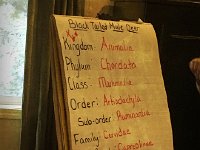 Black Tailed Mule Deer
Kingdom: Animalia
Phylum: Chordata
Class: Mammalia
Order: Artiodactyla
Sub-order: Ruminantia
Family: Cervidae